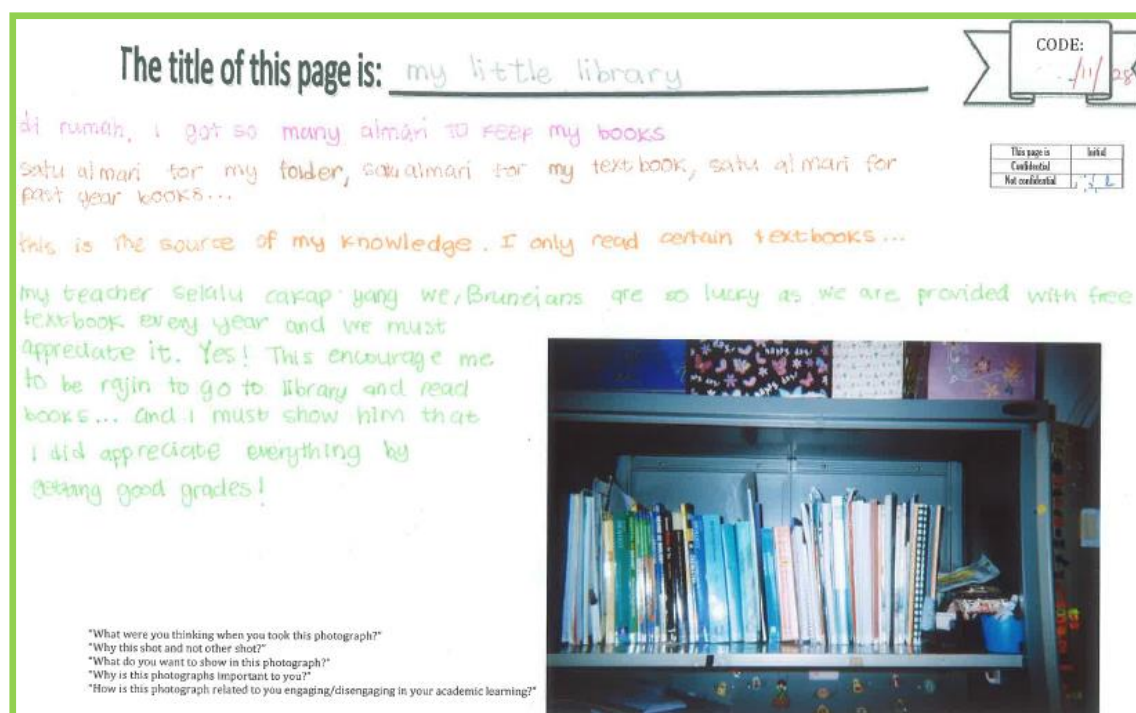 The title of this page is: my little library
CODE:
/11/ 28
This page is Initial
Confidential
Not confidential
di rumah, i got so many almari TO KEEP my books
satu almari for my folder, satu almari for my textbook, satu almari for
past year books...
this is the source of my knowledge. I only read certain textbooks...
my teacher selalu cakap yang we, Bruneians are so lucky as we are provided with free
textbook every year and we must
appreciate it. Yes! This encourage me
to be rajin to go to library and read
books... and i must show him that
i did appreciate everything by
getting good grades!
"What were you thinking when you took this photograph?"
"Why this shot and not other shot?"
"What do you want to show in this photograph?"
"Why is this photographs important to you?"
"How is this photograph related to you engaging/disengaging in your academic learning?"